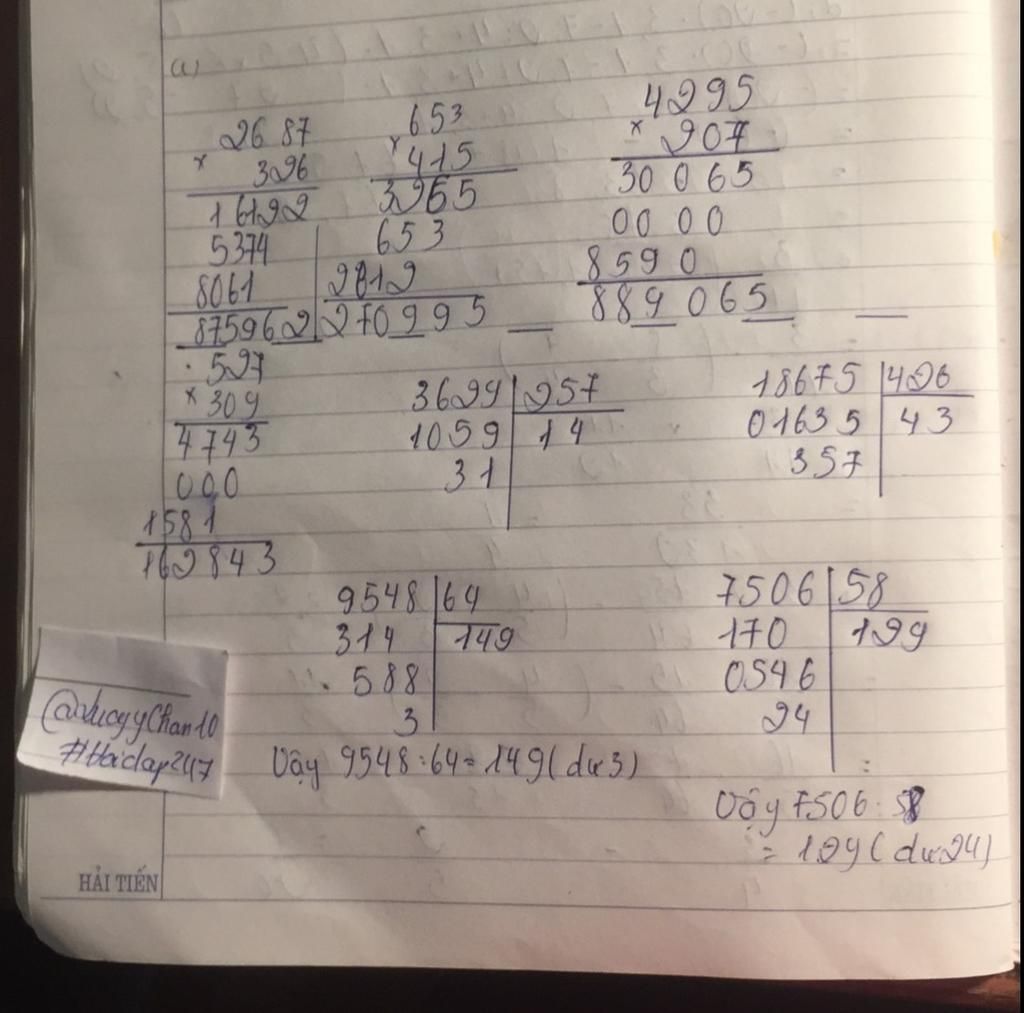 a)
2687
× 326
16122
5374
8061
875962
653
× 415
3265
653
2612
270995
4295
× 207
30065
0000
8590
889065
527
× 309
4743
000
1581
162843
3699 257
1059 14
31
18675 426
01635 43
357
9548 64
314 149
588
3
Vậy 9548:64=149(dư3)
7506 58
170 129
0546
24
Vậy 7506:58
= 129(dư24)
#Hoidap247
HẢI TIẾN